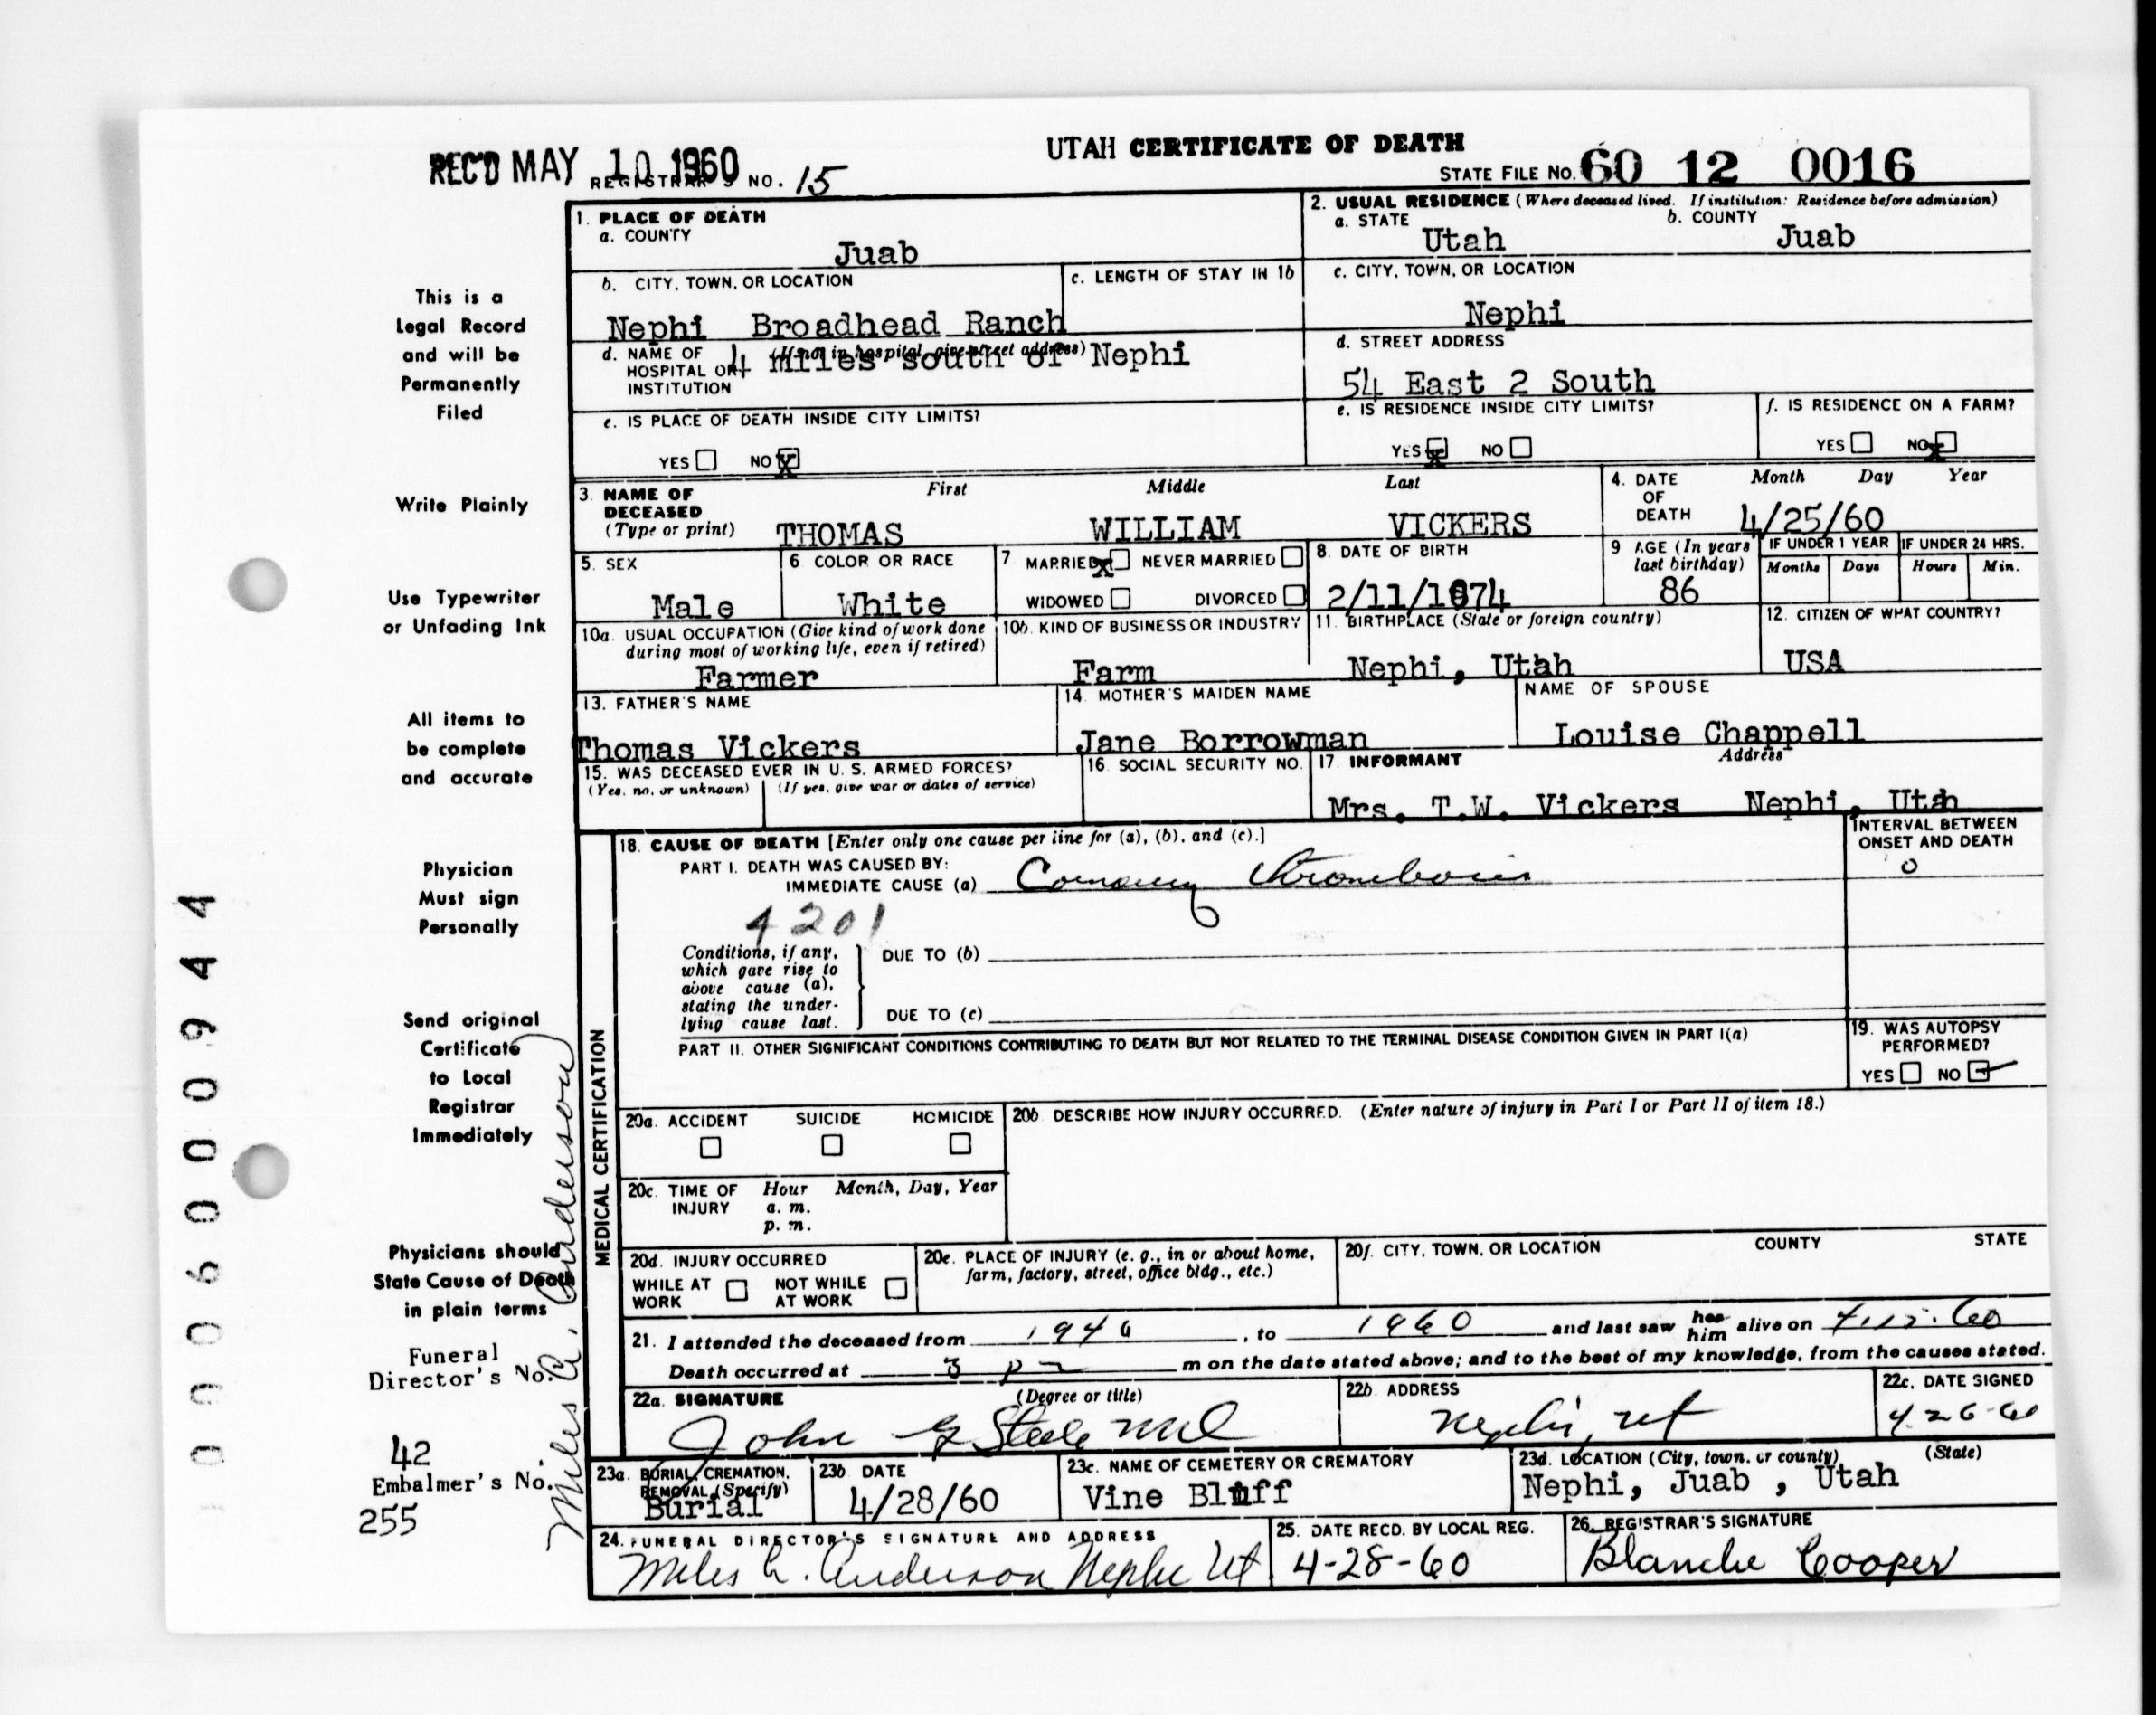 UTAH CERTIFICATE OF DEATH
REC'D MAY 10 1960 REGISTRAR'S NO. 15
STATE FILE NO. 60 12 0016
1. PLACE OF DEATH
a. COUNTY
Juab
2. USUAL RESIDENCE (Where deceased lived. If institution: Residence before admission)
a. STATE
Utah
b. COUNTY
Juab
b. CITY, TOWN, OR LOCATION
Nephi Broadhead Ranch
c. LENGTH OF STAY IN 1b
c. CITY, TOWN, OR LOCATION
Nephi
d. NAME OF HOSPITAL OR INSTITUTION
(If not in hospital, give street address)
4 miles south of Nephi
d. STREET ADDRESS
54 East 2 South
e. IS PLACE OF DEATH INSIDE CITY LIMITS?
YES NO X
e. IS RESIDENCE INSIDE CITY LIMITS?
YES X NO
f. IS RESIDENCE ON A FARM?
YES NO X
3. NAME OF DECEASED
(Type or print)
First Middle Last
THOMAS WILLIAM VICKERS
4. DATE OF DEATH
Month Day Year
4/25/60
5. SEX
Male
6 COLOR OR RACE
White
7 MARRIED X NEVER MARRIED
WIDOWED DIVORCED
8. DATE OF BIRTH
2/11/1874
9 AGE (In years last birthday)
86
IF UNDER 1 YEAR
Months Days
IF UNDER 24 HRS.
Hours Min.
10a. USUAL OCCUPATION (Give kind of work done during most of working life, even if retired)
Farmer
10b. KIND OF BUSINESS OR INDUSTRY
Farm
11. BIRTHPLACE (State or foreign country)
Nephi, Utah
12. CITIZEN OF WHAT COUNTRY?
USA
13. FATHER'S NAME
Thomas Vickers
14. MOTHER'S MAIDEN NAME
Jane Borrowman
NAME OF SPOUSE
Louise Chappell
15. WAS DECEASED EVER IN U. S. ARMED FORCES?
(Yes, no, or unknown) (If yes, give war or dates of service)
16. SOCIAL SECURITY NO.
17. INFORMANT Address
Mrs. T.W. Vickers Nephi, Utah
18. CAUSE OF DEATH [Enter only one cause per line for (a), (b), and (c).]
INTERVAL BETWEEN ONSET AND DEATH
PART I. DEATH WAS CAUSED BY:
IMMEDIATE CAUSE (a) Coronary Thrombosis
0
4201
Conditions, if any, which gave rise to above cause (a), stating the underlying cause last.
DUE TO (b)
DUE TO (c)
PART II. OTHER SIGNIFICANT CONDITIONS CONTRIBUTING TO DEATH BUT NOT RELATED TO THE TERMINAL DISEASE CONDITION GIVEN IN PART I(a)
19. WAS AUTOPSY PERFORMED?
YES NO
20a. ACCIDENT SUICIDE HOMICIDE
20b. DESCRIBE HOW INJURY OCCURRED. (Enter nature of injury in Part I or Part II of item 18.)
20c. TIME OF INJURY
Hour Month, Day, Year
a. m.
p. m.
20d. INJURY OCCURRED
WHILE AT WORK NOT WHILE AT WORK
20e. PLACE OF INJURY (e. g., in or about home, farm, factory, street, office bldg., etc.)
20f. CITY, TOWN, OR LOCATION COUNTY STATE
21. I attended the deceased from 1946, to 1960 and last saw her him alive on
Death occurred at 3 p m on the date stated above; and to the best of my knowledge, from the causes stated.
22a. SIGNATURE (Degree or title)
John G Steele MD
22b. ADDRESS
Nephi, Ut
22c. DATE SIGNED
4-26-60
23a. BURIAL, CREMATION, REMOVAL (Specify)
Burial
23b. DATE
4/28/60
23c. NAME OF CEMETERY OR CREMATORY
Vine Bluff
23d. LOCATION (City, town, or county) (State)
Nephi, Juab , Utah
24. FUNERAL DIRECTOR'S SIGNATURE AND ADDRESS
Miles A. Anderson Nephi Ut
25. DATE RECD. BY LOCAL REG.
4-28-60
26. REGISTRAR'S SIGNATURE
Blanche Cooper
MEDICAL CERTIFICATION
This is a
Legal Record
and will be
Permanently
Filed
Write Plainly
Use Typewriter
or Unfading Ink
All items to
be complete
and accurate
Physician
Must sign
Personally
Send original
Certificate
to Local
Registrar
Immediately
Physicians should
State Cause of Death
in plain terms
Funeral
Director's No.
42
Embalmer's No.
255
Miles A. Anderson
0006000944